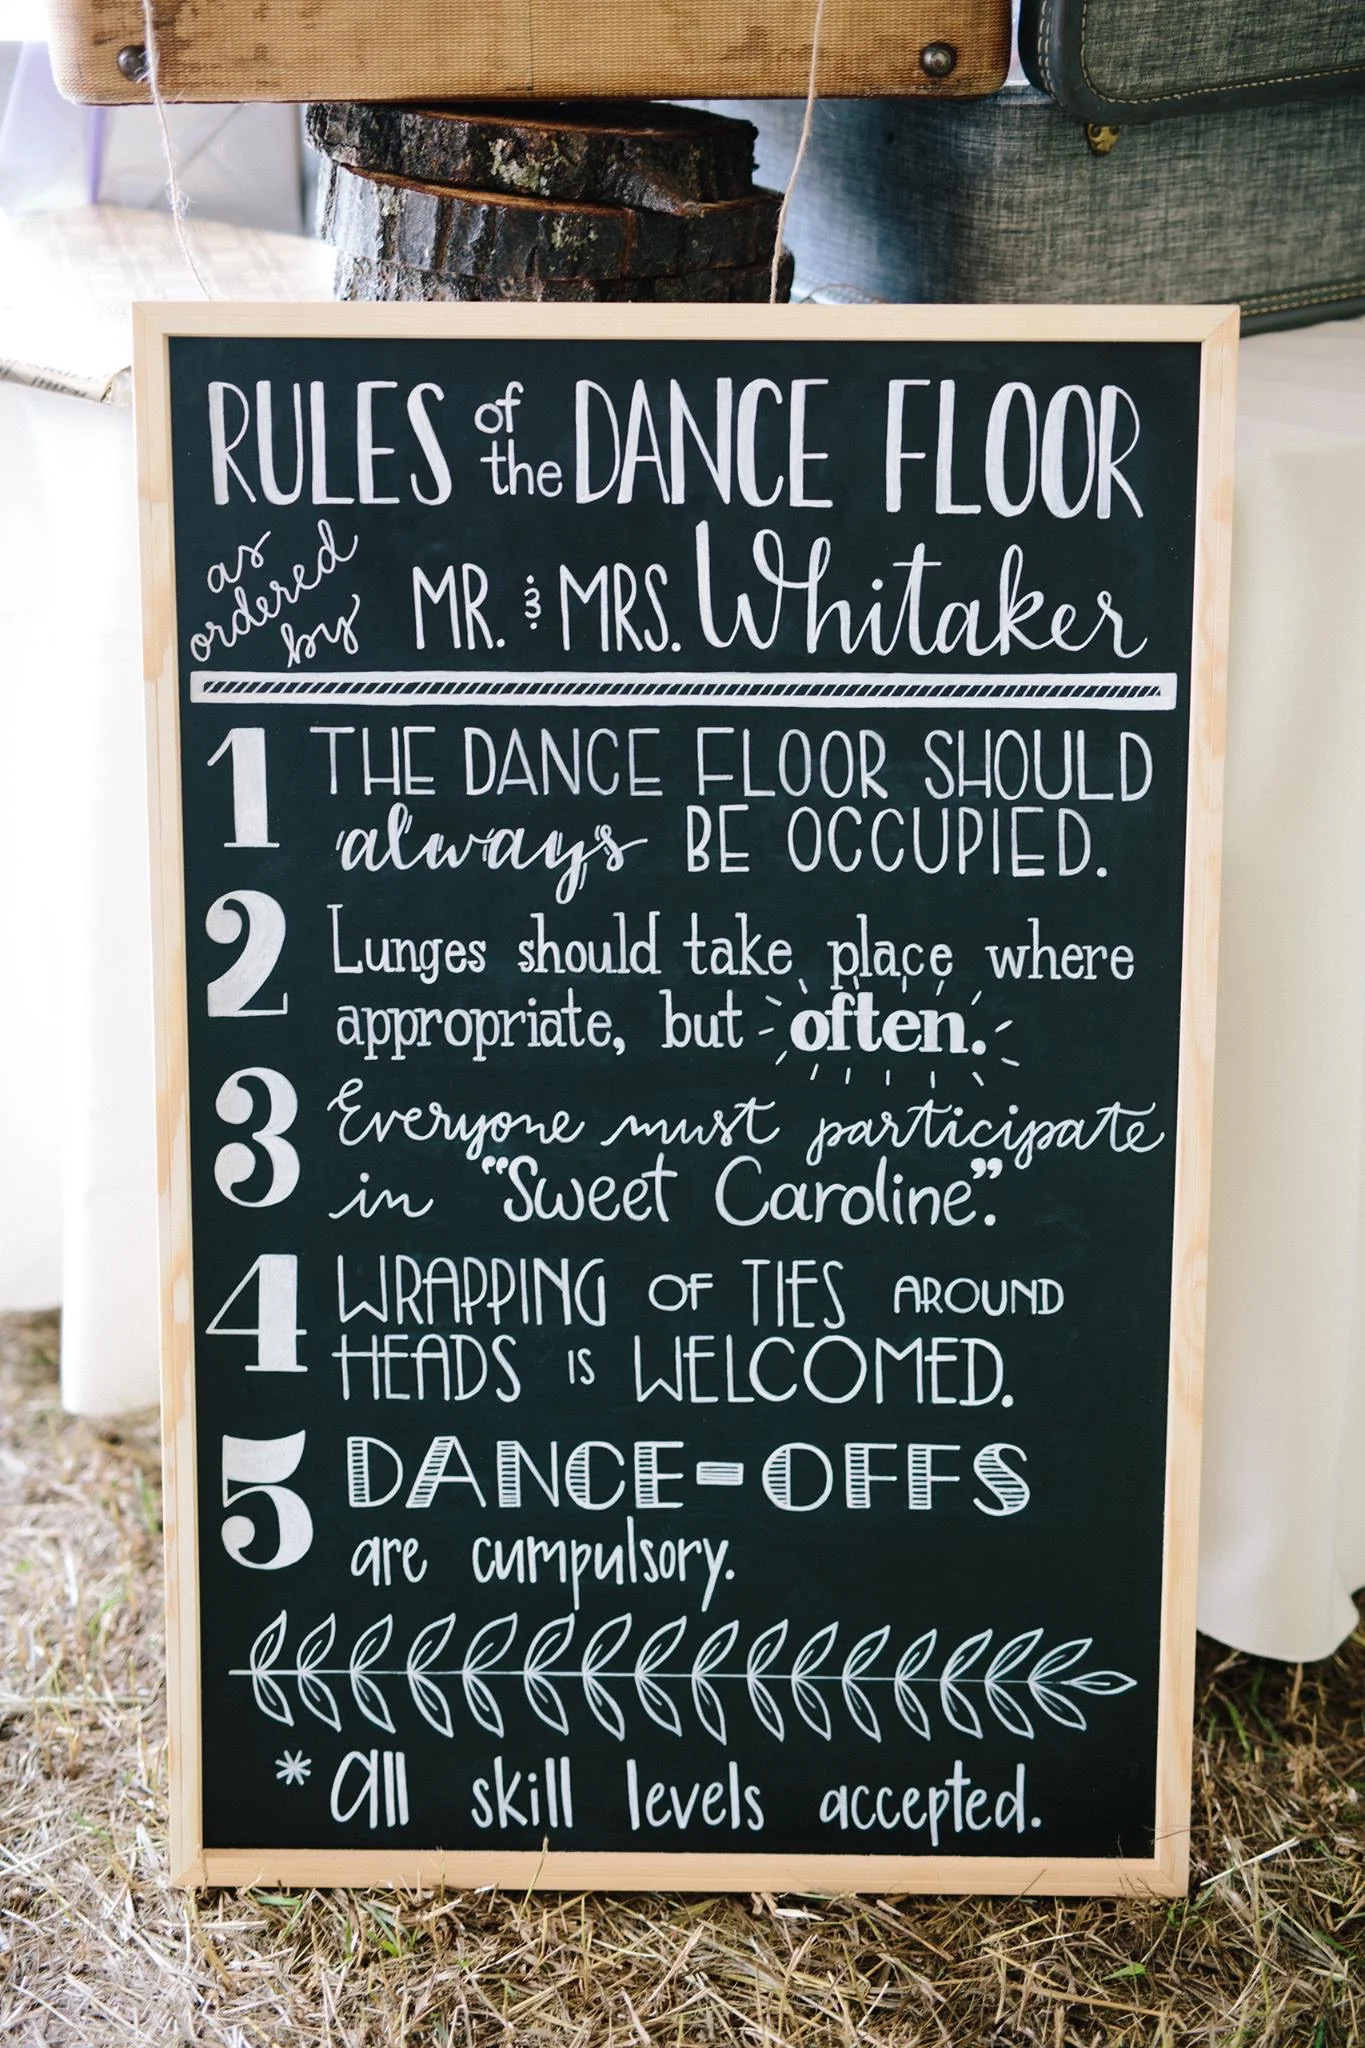 RULES of the DANCE FLOOR
as ordered by MR. & MRS. Whitaker
1 THE DANCE FLOOR SHOULD
always BE OCCUPIED.
2 Lunges should take place where
appropriate, but often.
3 Everyone must participate
in "Sweet Caroline".
4 WRAPPING OF TIES AROUND
HEADS IS WELCOMED.
5 DANCE-OFFS
are cumpulsory.
*All skill levels accepted.